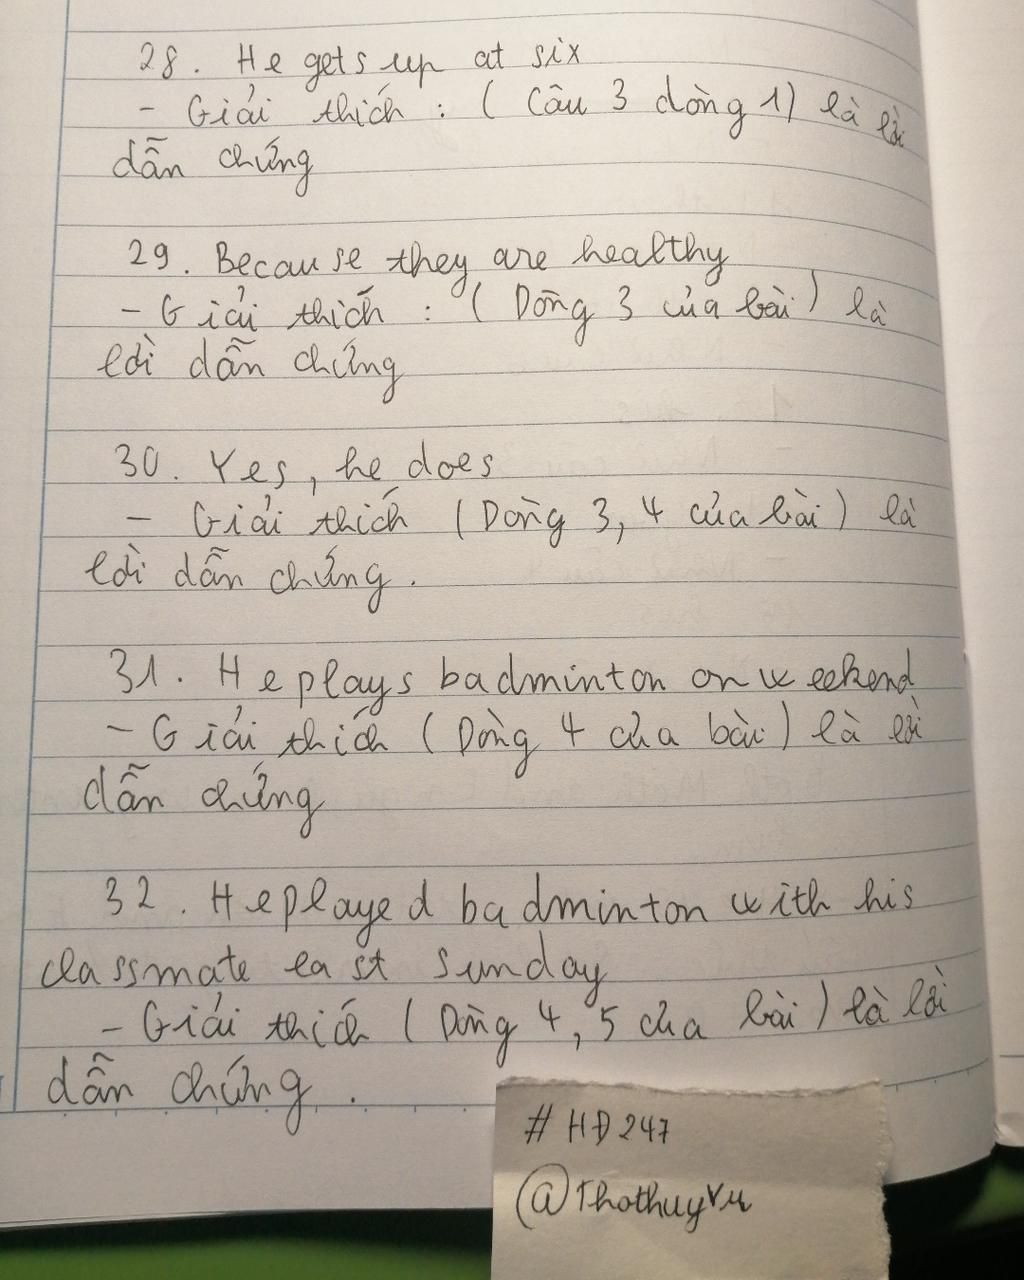 28. He gets up at six
- Giải thích : ( Câu 3 dòng 1) là lời
dẫn chứng
29. Because they are healthy
- Giải thích : ( Dòng 3 của bài) là
lời dẫn chứng
30. Yes, he does
- Giải thích (Dòng 3, 4 của bài) là
lời dẫn chứng.
31. He plays badminton on weekend
- Giải thích (Dòng 4 của bài) là lời
dẫn chứng
32. He played badminton with his
classmate last sunday
- Giải thích (Dòng 4, 5 của bài) là lời
dẫn chứng.
# HĐ247
@Thothuyvu